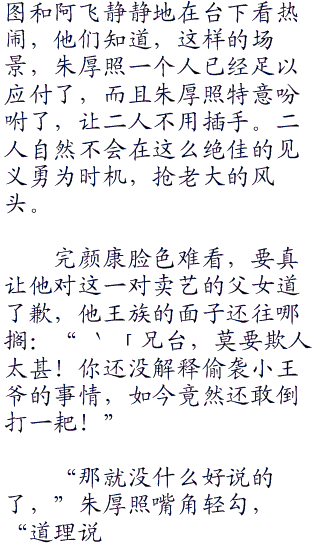 图和阿飞静静地在台下看热
闹，他们知道，这样的场
景，朱厚照一个人已经足以
应付了，而且朱厚照特意吩
咐了，让二人不用插手。二
人自然不会在这么绝佳的见
义勇为时机，抢老大的风
头。
完颜康脸色难看，要真
让他对这一对卖艺的父女道
了歉，他王族的面子还往哪
搁：“‵「兄台，莫要欺人
太甚！你还没解释偷袭小王
爷的事情，如今竟然还敢倒
打一耙！”
“那就没什么好说的
了，”朱厚照嘴角轻勾，
“道理说